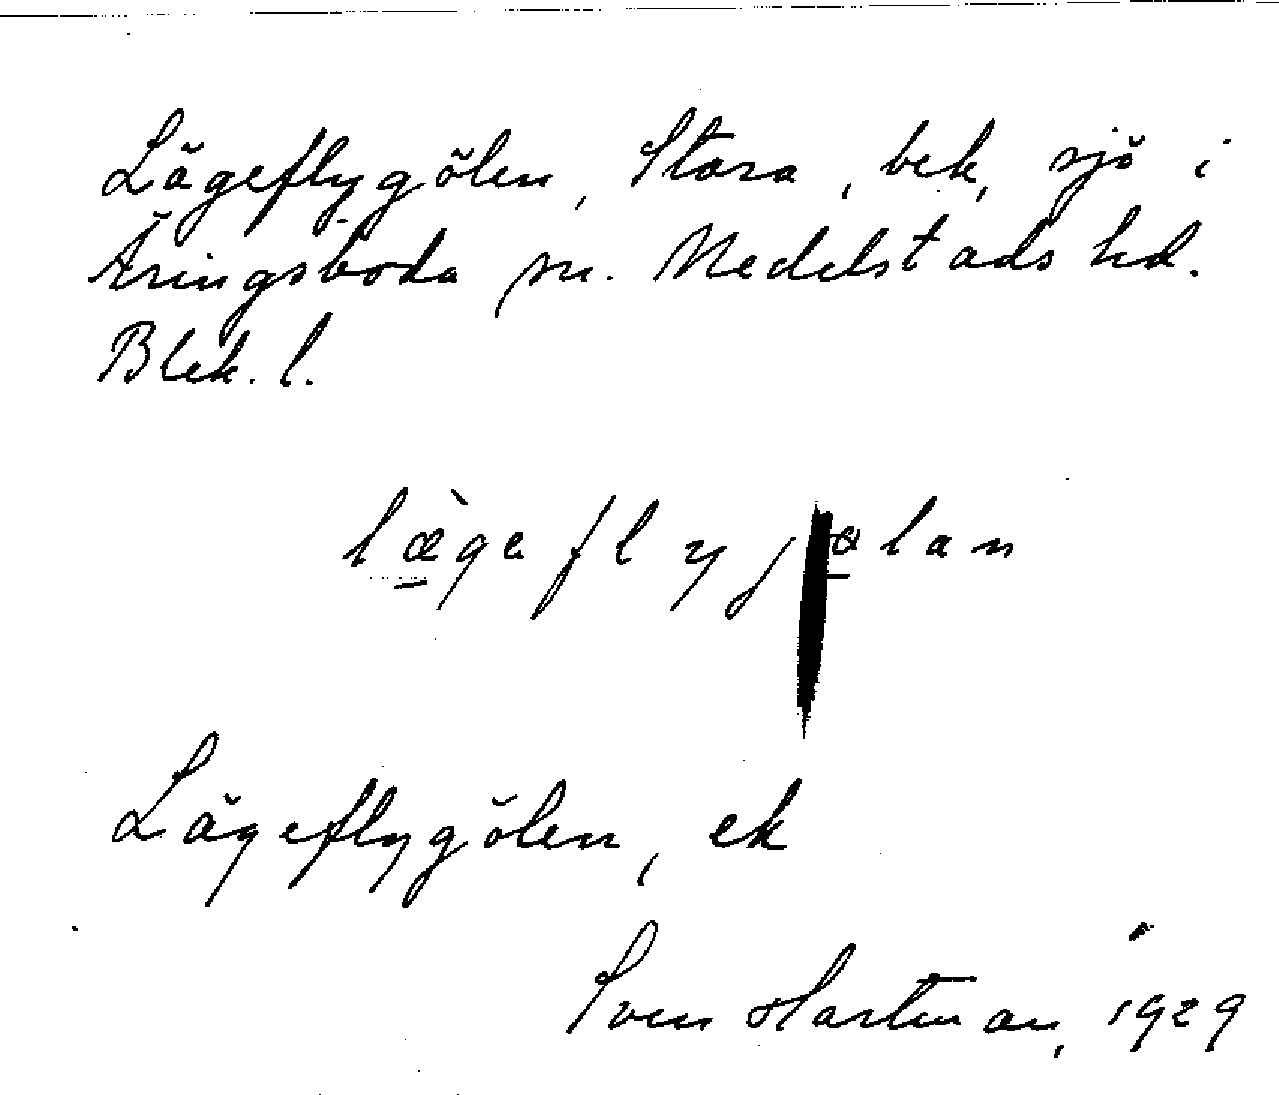 Lägeflygölen, Stora, bek, sjö i
Äringsboda sn. Medelstads hd.
Blek. l.
læ̀geflyj ølan
Lägeflygölen, ek
Sven Hartman, 1929